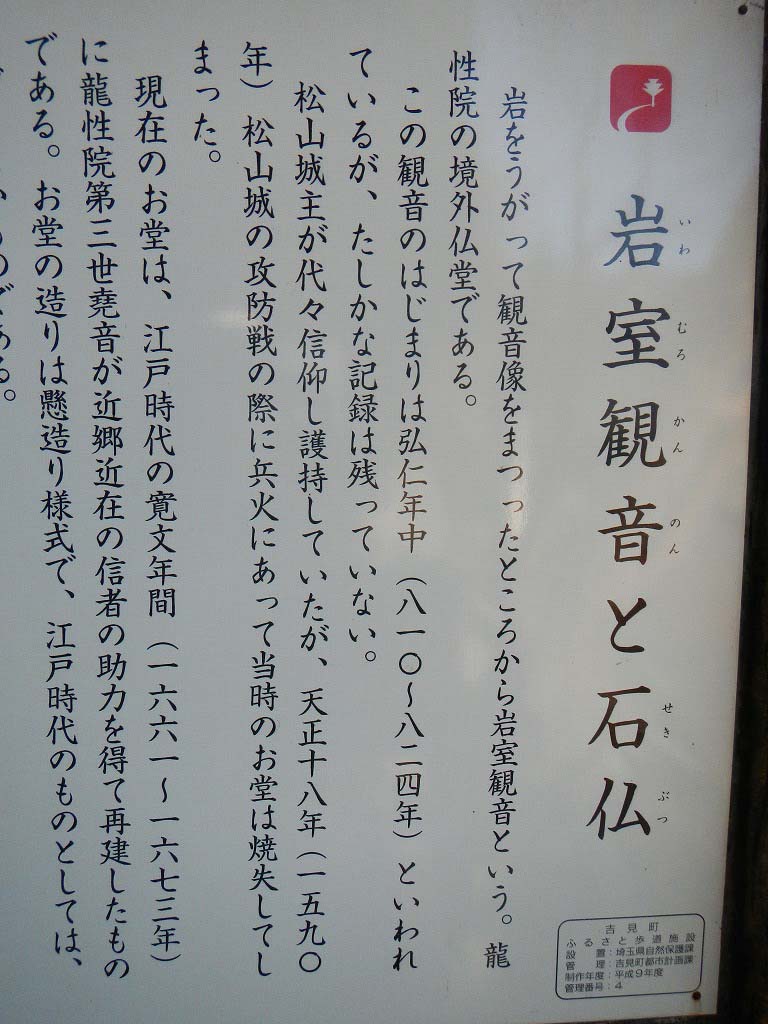 岩室観音と石仏
いわ むろ かん のん せき ぶつ
岩をうがって観音像をまつったところから岩室観音という。龍
性院の境外仏堂である。
この観音のはじまりは弘仁年中（八一〇～八二四年）といわれ
ているが、たしかな記録は残っていない。
松山城主が代々信仰し護持していたが、天正十八年（一五九〇
年）松山城の攻防戦の際に兵火にあって当時のお堂は焼失してし
まった。
現在のお堂は、江戸時代の寛文年間（一六六一～一六七三年）
に龍性院第三世堯音が近郷近在の信者の助力を得て再建したもの
である。お堂の造りは懸造り様式で、江戸時代のものとしては、
のである。
吉見町
ふるさと歩道施設
設置：埼玉県自然保護課
管理：吉見町都市計画課
制作年度：平成9年度
管理番号：4